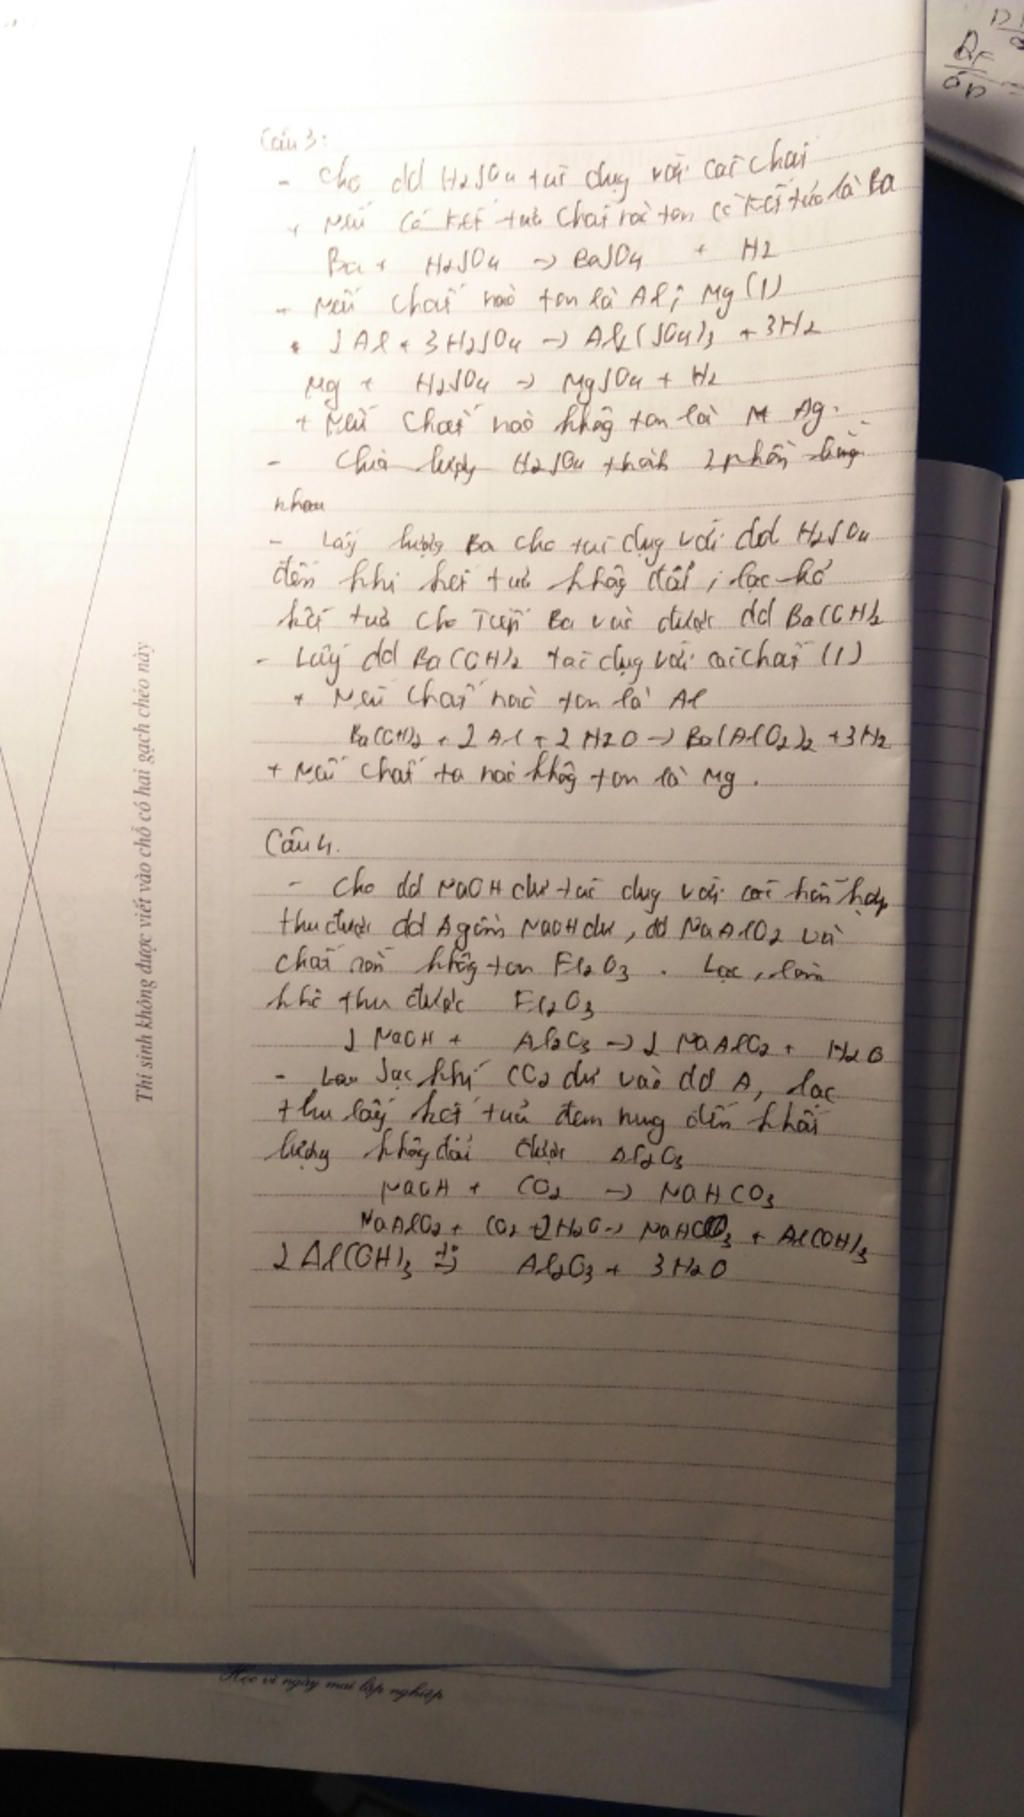 Câu 3:
- Cho dd H2SO4 tác dụng với các chất
+ Nếu có kết tủa chất nào tan có kết tủa là Ba
Ba + H2SO4 -> BaSO4 + H2
- Nếu chất nào tan là Al, Mg (1)
2Al + 3H2SO4 -> Al2(SO4)3 + 3H2
Mg + H2SO4 -> MgSO4 + H2
+ Nếu chất nào không tan là Ag.
- Chia lượng H2SO4 thành 2 phần bằng
nhau
- Lấy lượng Ba cho tác dụng với dd H2SO4
đến khi kết tủa không đổi, lọc bỏ
kết tủa cho tiếp Ba vào được dd Ba(OH)2
- Lấy dd Ba(OH)2 tác dụng với các chất (1)
+ Nếu chất nào tan là Al
Ba(OH)2 + 2Al + 2H2O -> Ba(AlO2)2 + 3H2
+ Nếu chất nào không tan là Mg.
Câu 4.
- Cho dd NaOH dư tác dụng với các hỗn hợp
thu được dd A gồm NaOH dư, dd NaAlO2 và
chất rắn không tan Fe2O3. Lọc, làm
khô thu được Fe2O3
2NaOH + Al2O3 -> 2NaAlO2 + H2O
- Sục khí CO2 dư vào dd A, lọc
thu lấy kết tủa đem nung đến khối
lượng không đổi được Al2O3
NaOH + CO2 -> NaHCO3
NaAlO2 + CO2 + 2H2O -> NaHCO3 + Al(OH)3
2Al(OH)3 t° -> Al2O3 + 3H2O
Thí sinh không được viết vào chỗ có hai gạch chéo này
Học vì ngày mai lập nghiệp